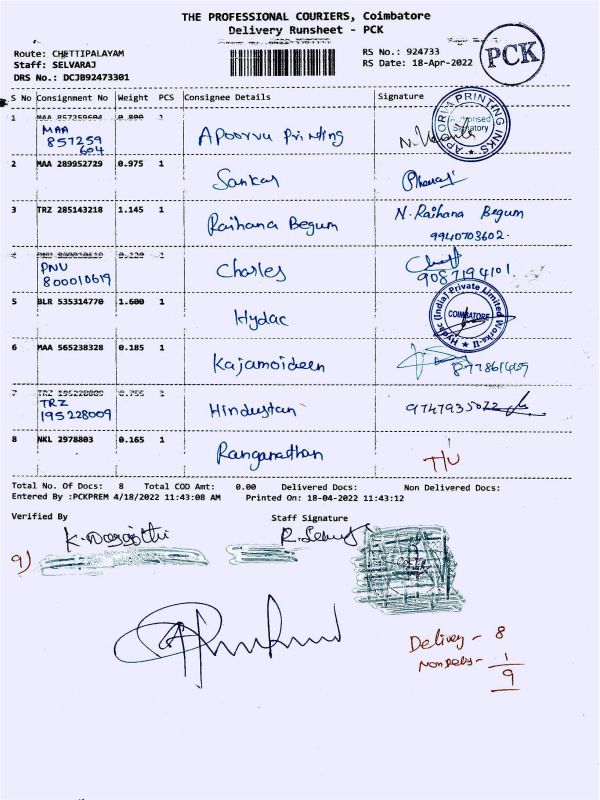 THE PROFESSIONAL COURIERS, Coimbatore
Delivery Runsheet - PCK
Route: CHETTIPALAYAM
Staff: SELVARAJ
DRS No.: DCJB92473301
RS No.: 924733
RS Date: 18-Apr-2022
PCK
S No Consignment No Weight PCS Consignee Details Signature
1 MAA 857259604 0.800 1
MAA
857259
604
Apoorva Printing
APOORVA PRINTING INKS
Authorised
Signatory
2 MAA 289952729 0.975 1
Sankar
3 TRZ 285143218 1.145 1
Raihana Begum
N. Raihana Begum
9940703602.
4 PNU 800010619 0.130 1
PNU
800010619
Charles
9087194101
5 BLR 535314770 1.600 1
Hydac
Hydac (India) Private Limited
COIMBATORE
Works-II
6 MAA 565238328 0.185 1
Kajamoideen
7 TRZ 195228009 0.755 1
TRZ
195228009
Hindustan
8 NKL 2978803 0.165 1
Ranganathan
Total No. Of Docs: 8 Total COD Amt: 0.00 Delivered Docs: Non Delivered Docs:
Entered By :PCKPREM 4/18/2022 11:43:08 AM Printed On: 18-04-2022 11:43:12
Verified By Staff Signature
9)
Delivery - 8
1
9